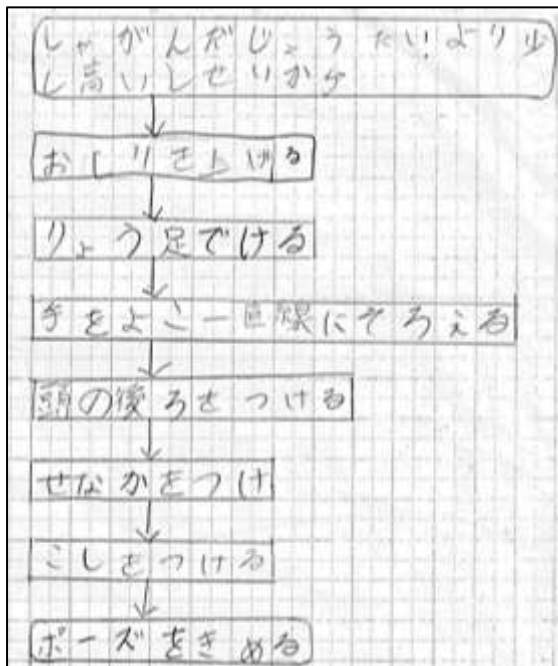 しゃがんだじょうたいより少
し高いしせいから
おしりを上げる
りょう足でける
手をよこ一直線にそろえる
頭の後ろをつける
せなかをつけ
こしをつける
ポーズをきめる